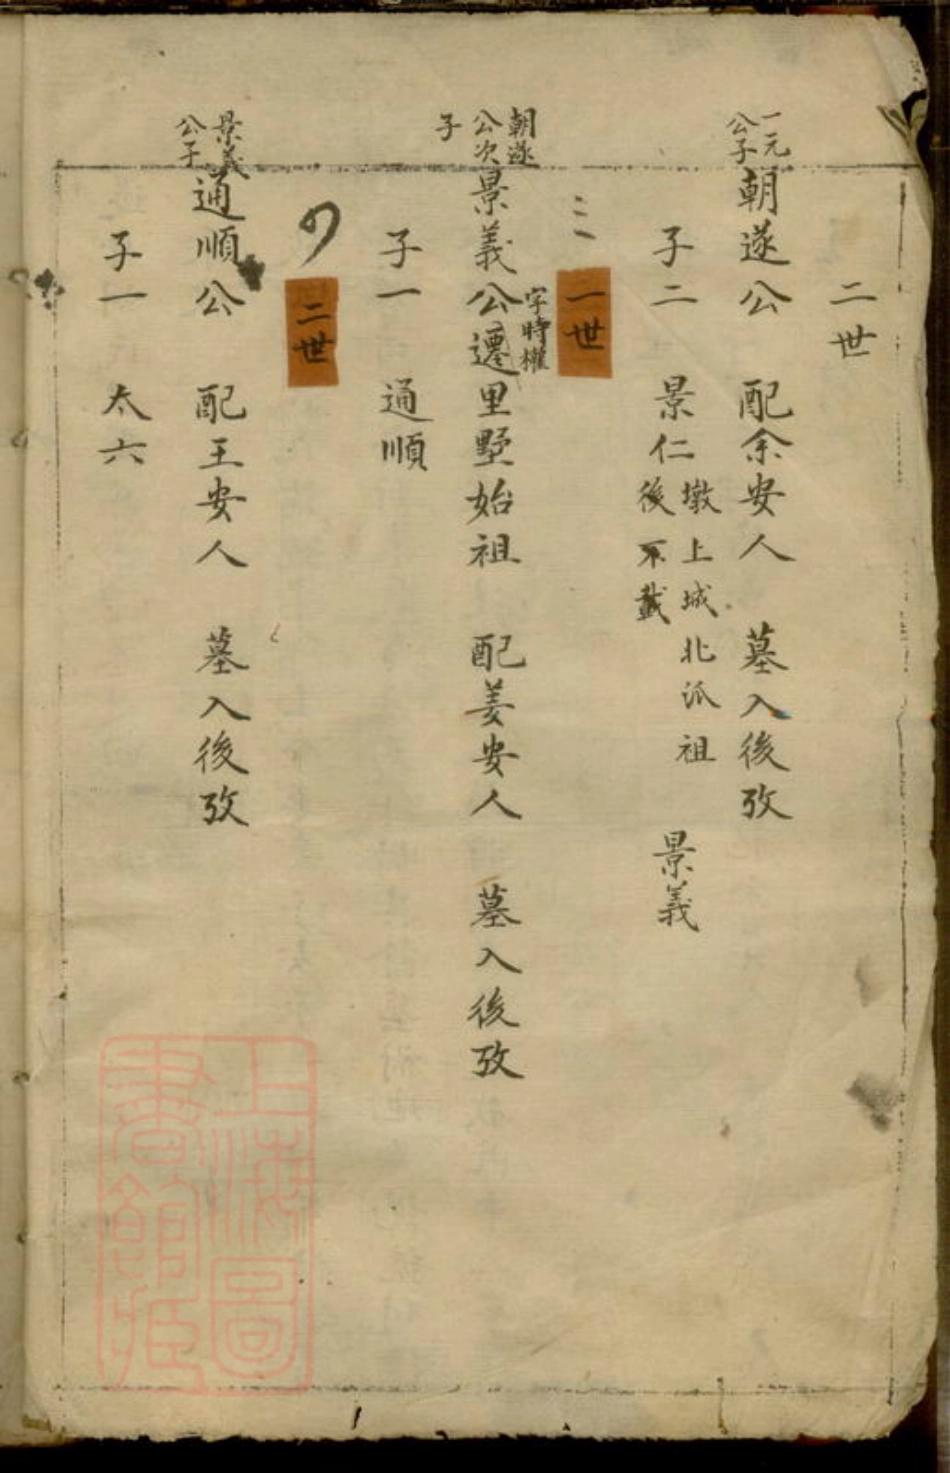 二世
一元
公子
朝遂公 配余安人 墓入後攷
子二 景仁 墩上城北派祖
後不載 景義
一世
朝遂
公次
子
景義公 字時權 遷里墅始祖 配姜安人 墓入後攷
子一 通順
二世
景義
公子
通順公 配王安人 墓入後攷
子一 太六
上海圖
書館藏